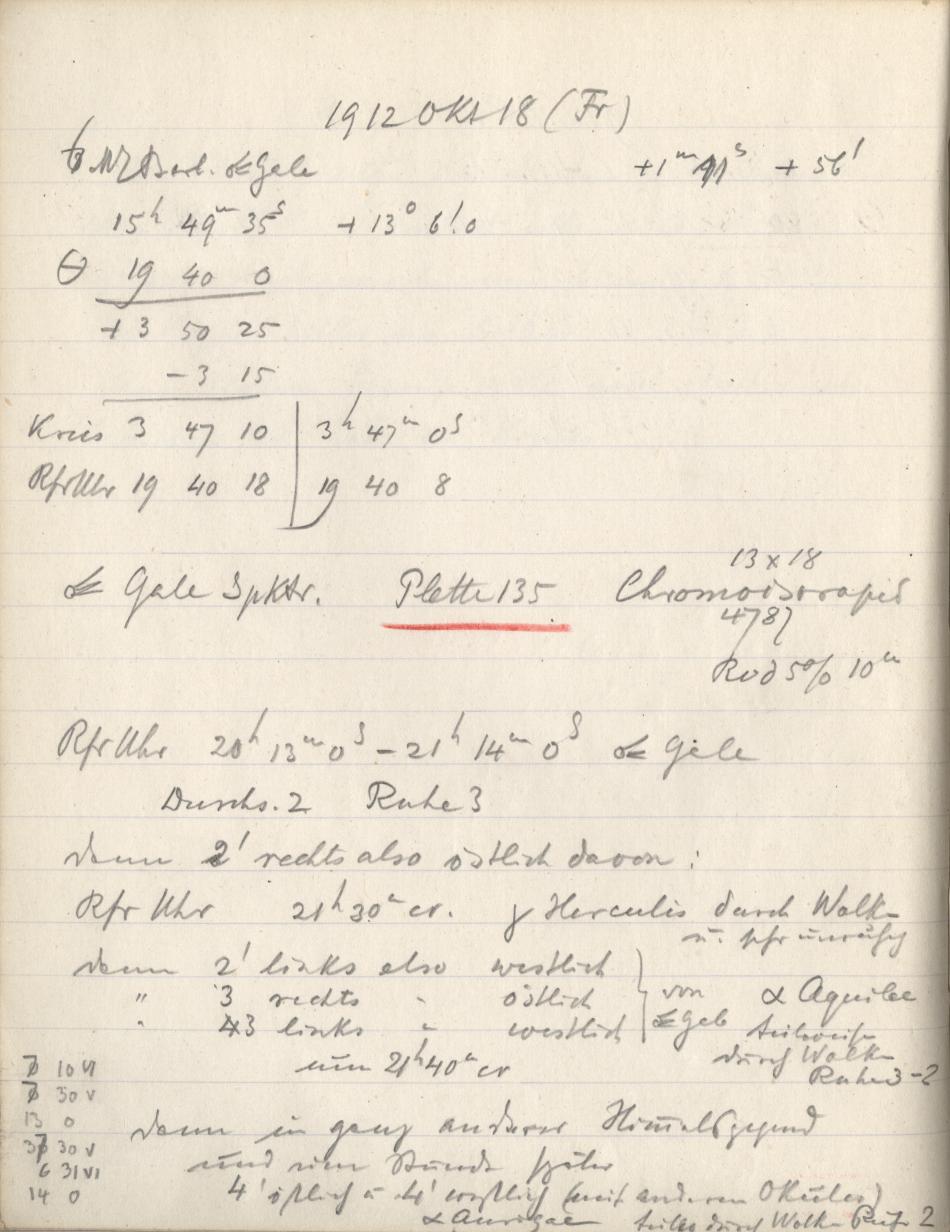 1912 Okt 18 (Fr)
Gale +1ᵐ 11ˢ + 56'
15ʰ 49ᵐ 35ˢ + 13° 6!0
Θ 19 40 0
+ 3 50 25
- 3 15
Kreis 3 47 10 3ʰ 47ᵐ 0ˢ
RfrUhr 19 40 18 19 40 8
☄ Gale Spktr. Platte 135 13 x 18
Chromoisorapid
4787
Rod 5% 10ᵐ
Rfr Uhr 20ʰ 13ᵐ 0ˢ - 21ʰ 14ᵐ 0ˢ ☄ Gale
Durchs. 2 Ruhe 3
dann 2' rechts also östlich davon :
Rfr Uhr 21ʰ 30ᵐ cr. γ Herculis durch Wolken
u. sehr unruhig
dann 2' links also westlich
" 3 rechts " östlich von α Aquilae
" 3 links " westlich ☄ teilweise
um 21ʰ 40ᵐ cr durch Wolken
Ruhe 3-2
10 VI
30 V
13 0
30 V
6 31 VI
14 0
dann in ganz anderer Himmelsgegend
und eine Stunde später
4' östlich u 4' westlich (mit anderem Okular)
α Aurigae teilw durch Wolken Ruhe 2